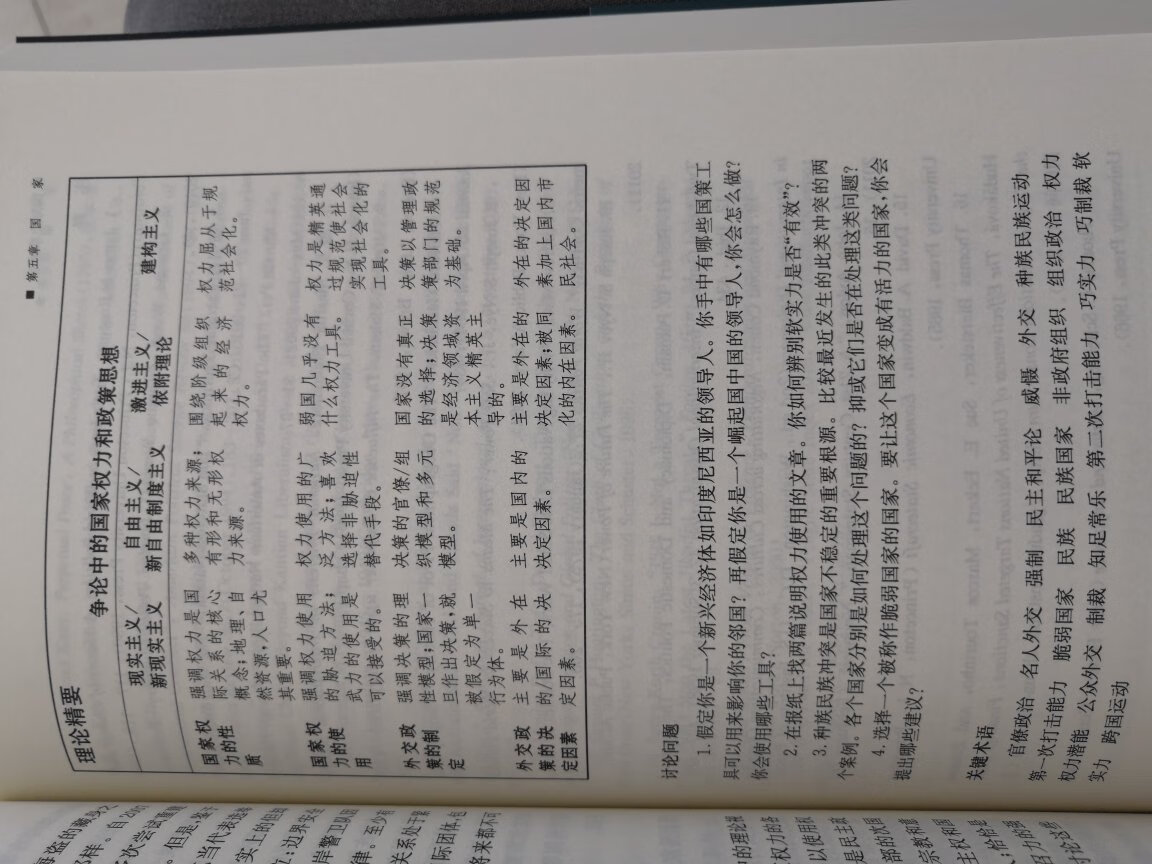 ■ 第五章 国 家
理论精要
争论中的国家权力和政策思想
现实主义/
新现实主义
自由主义/
新自由制度主义
激进主义/
依附理论
建构主义
国家权
力的性
质
强调权力是国
际关系的核心
概念;地理、自
然资源,人口尤
其重要。
多种权力来源;
有形和无形权
力来源。
围绕阶级组织
起来的经济
权力。
权力屈从于规
范社会化。
国家权
力的使
用
强调权力使用
的胁迫方法;
武力的使用是
可以接受的。
权力使用的广
泛方法;喜欢
选择非胁迫性
替代手段。
弱国几乎没有
什么权力工具。
权力是精英通
过规范使社会
实现社会化的
工具。
外交政
策的制
定
强调决策的理
性模型;国家一
旦作出决策,就
被假定为单一
行为体。
决策的官僚/组
织模型和多元
模型。
国家没有真正
的选择;决策
是经济领域资
本主义精英主
导的。
决策以管理政
策部门的规范
为基础。
外交政
策的决
定因素
主要是外在
的/国际的决
定因素。
主要是国内的
决定因素。
主要是外在的
决定因素;被同
化的内在因素。
外在的决定因
素加上国内市
民社会。
讨论问题
1. 假定你是一个新兴经济体如印度尼西亚的领导人。你手中有哪些国策工
具可以用来影响你的邻国?再假定你是一个崛起国中国的领导人,你会怎么做?
你会使用哪些工具?
2. 在报纸上找两篇说明权力使用的文章。你如何辨别软实力是否“有效”?
3. 种族民族冲突是国家不稳定的重要根源。比较最近发生的此类冲突的两
个案例。各个国家分别是如何处理这个问题的?抑或它们是否在处理这类问题?
4. 选择一个被称作脆弱国家的国家。要让这个国家变成有活力的国家,你会
提出哪些建议?
关键术语
官僚政治 名人外交 强制 民主和平论 威慑 外交 种族民族运动
第一次打击能力 脆弱国家 民族 民族国家 非政府组织 组织政治 权力
权力潜能 公众外交 制裁 知足常乐 第二次打击能力 巧实力 巧制裁 软
实力 跨国运动